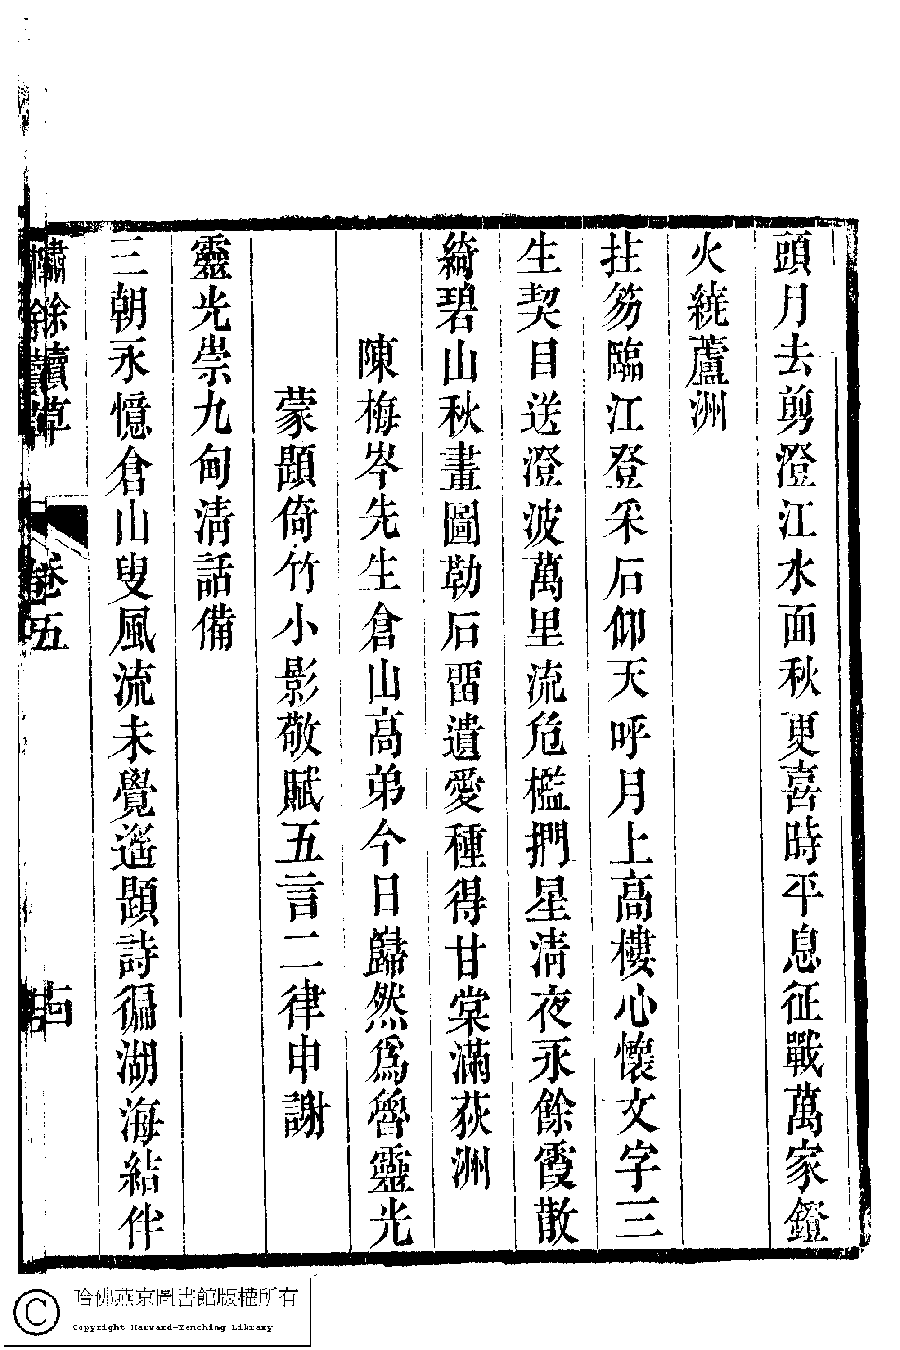 頭月去剪澄江水面秋更喜時平息征戰萬家鐙
火繞蘆洲
拄笏臨江登采石仰天呼月上高樓心懷文字三
生契目送澄波萬里流危檻捫星淸夜永餘霞散
綺碧山秋畫圖勒石畱遺愛種得甘棠滿荻洲
陳梅岑先生倉山高弟今日巋然爲魯靈光
蒙題倚竹小影敬賦五言二律申謝
靈光崇九甸淸話備
三朝永憶倉山叟風流未覺遙題詩徧湖海結伴
繡餘續草
卷五
古
哈佛燕京圖書館版權所有
Copyright Harvard-Yenching Library